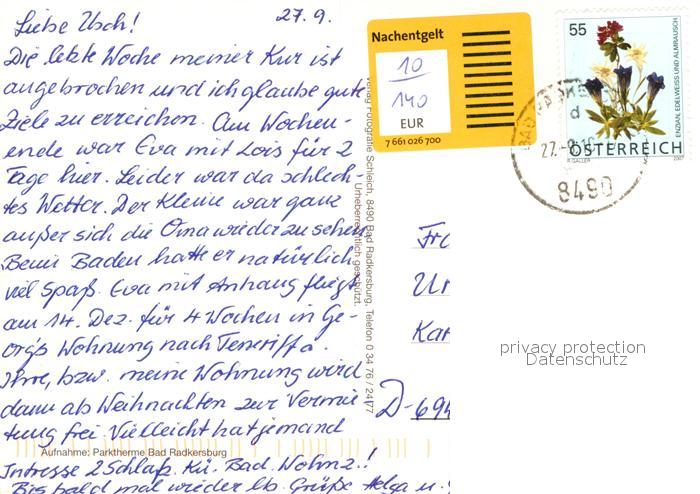 Liebe Usch! 27.9.
Die letzte Woche meiner Kur ist
angebrochen und ich glaube gute
Ziele zu erreichen. Am Wochen-
ende war Eva mit Lois für 2
Tage hier. Leider war da schlech-
tes Wetter. Der Kleine war ganz
außer sich die Oma wieder zu sehen
Beim Baden hatte er natürlich
viel Spaß. Eva mit Anhang fliegt
am 14. Dez. für 4 Wochen in Ge-
org's Wohnung nach Teneriffa.
Ihre, bzw. meine Wohnung wird
dann ab Weihnachten zur Vermie-
tung frei. Vielleicht hat jemand
Aufnahme: Parktherme Bad Radkersburg
Intresse 2 Schlafz. Kü. Bad. Wohnz.!
Bis bald mal wieder lb. Grüße Helga u.
Verlag Fotografie Schleich, 8490 Bad Radkersburg, Telefon 0 34 76 / 24 77
Urheberrechtlich geschützt.
Nachentgelt
10
140
EUR
7 661 026 700
55
ENZIAN, EDELWEISS UND ALMRAUSCH
ÖSTERREICH
R. GALLER 2007
d
8490
Fr
Ur
Kar
D-694
privacy protection
Datenschutz